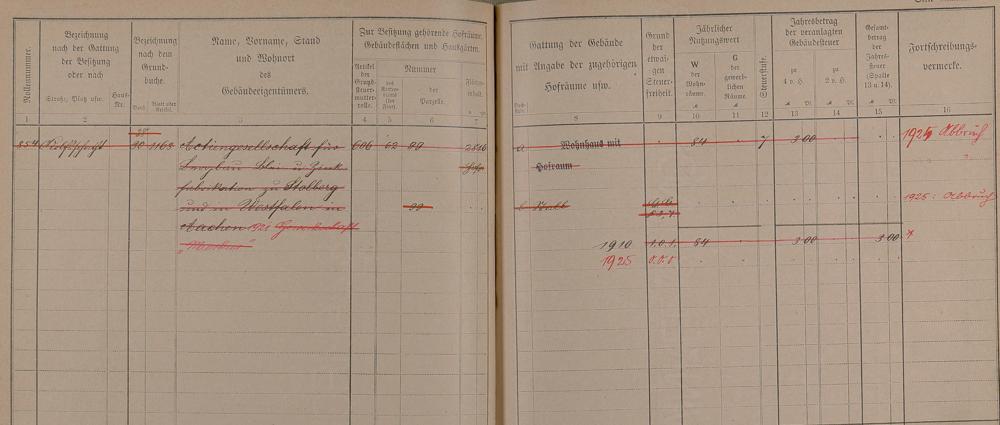 Rollennummer.
Bezeichnung
nach der Gattung
der Besitzung
oder nach
Straße, Platz usw.
Haus-
Nr.
Bezeichnung
nach dem
Grund-
buche.
Band
Blatt oder
Artikel
Name, Vorname, Stand
und Wohnort
des
Gebäudeeigentümers.
Zur Besitzung gehörende Hofräume,
Gebäudeflächen und Hausgärten.
Artikel
der
Grund-
steuer-
mutter-
rolle.
Nummer
des
Karten-
blattes
(der
Flur).
der
Parzelle.
Flächen-
inhalt.
1
2
3
4
5
6
7
854
30 1163
Actiengesellschaft für
606
62
99
Bergbau Blei u Zink
fabrikation zu Stolberg
und in Westfalen in
99
Aachen 1921 Gewerkschaft
Gattung der Gebäude
mit Angabe der zugehörigen
Hofräume usw.
Buch-
stabe.
Grund
der
etwai-
gen
Steuer-
freiheit.
Jährlicher
Nutzungswert
W
der
Wohn-
räume.
G
der
gewerb-
lichen
Räume.
Steuerstufe.
Jahresbetrag
der veranlagten
Gebäudesteuer
zu
4 v. H.
zu
2 v. H.
Gesamt-
betrag
der
Jahres-
steuer
(Spalte
13 u. 14).
Fortschreibungs-
vermerke.
8
9
10
11
12
13
14
15
16
a
Wohnhaus mit
84
7
3 00
Abbruch
Hofraum
b Stall
1925: Abbruch
1910
1.0.1.
84
3 00
3 00
1925
0.0.0